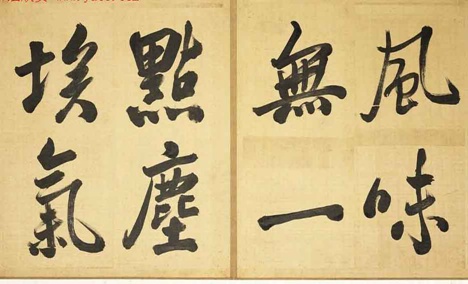 風味
無一
點塵
埃氣